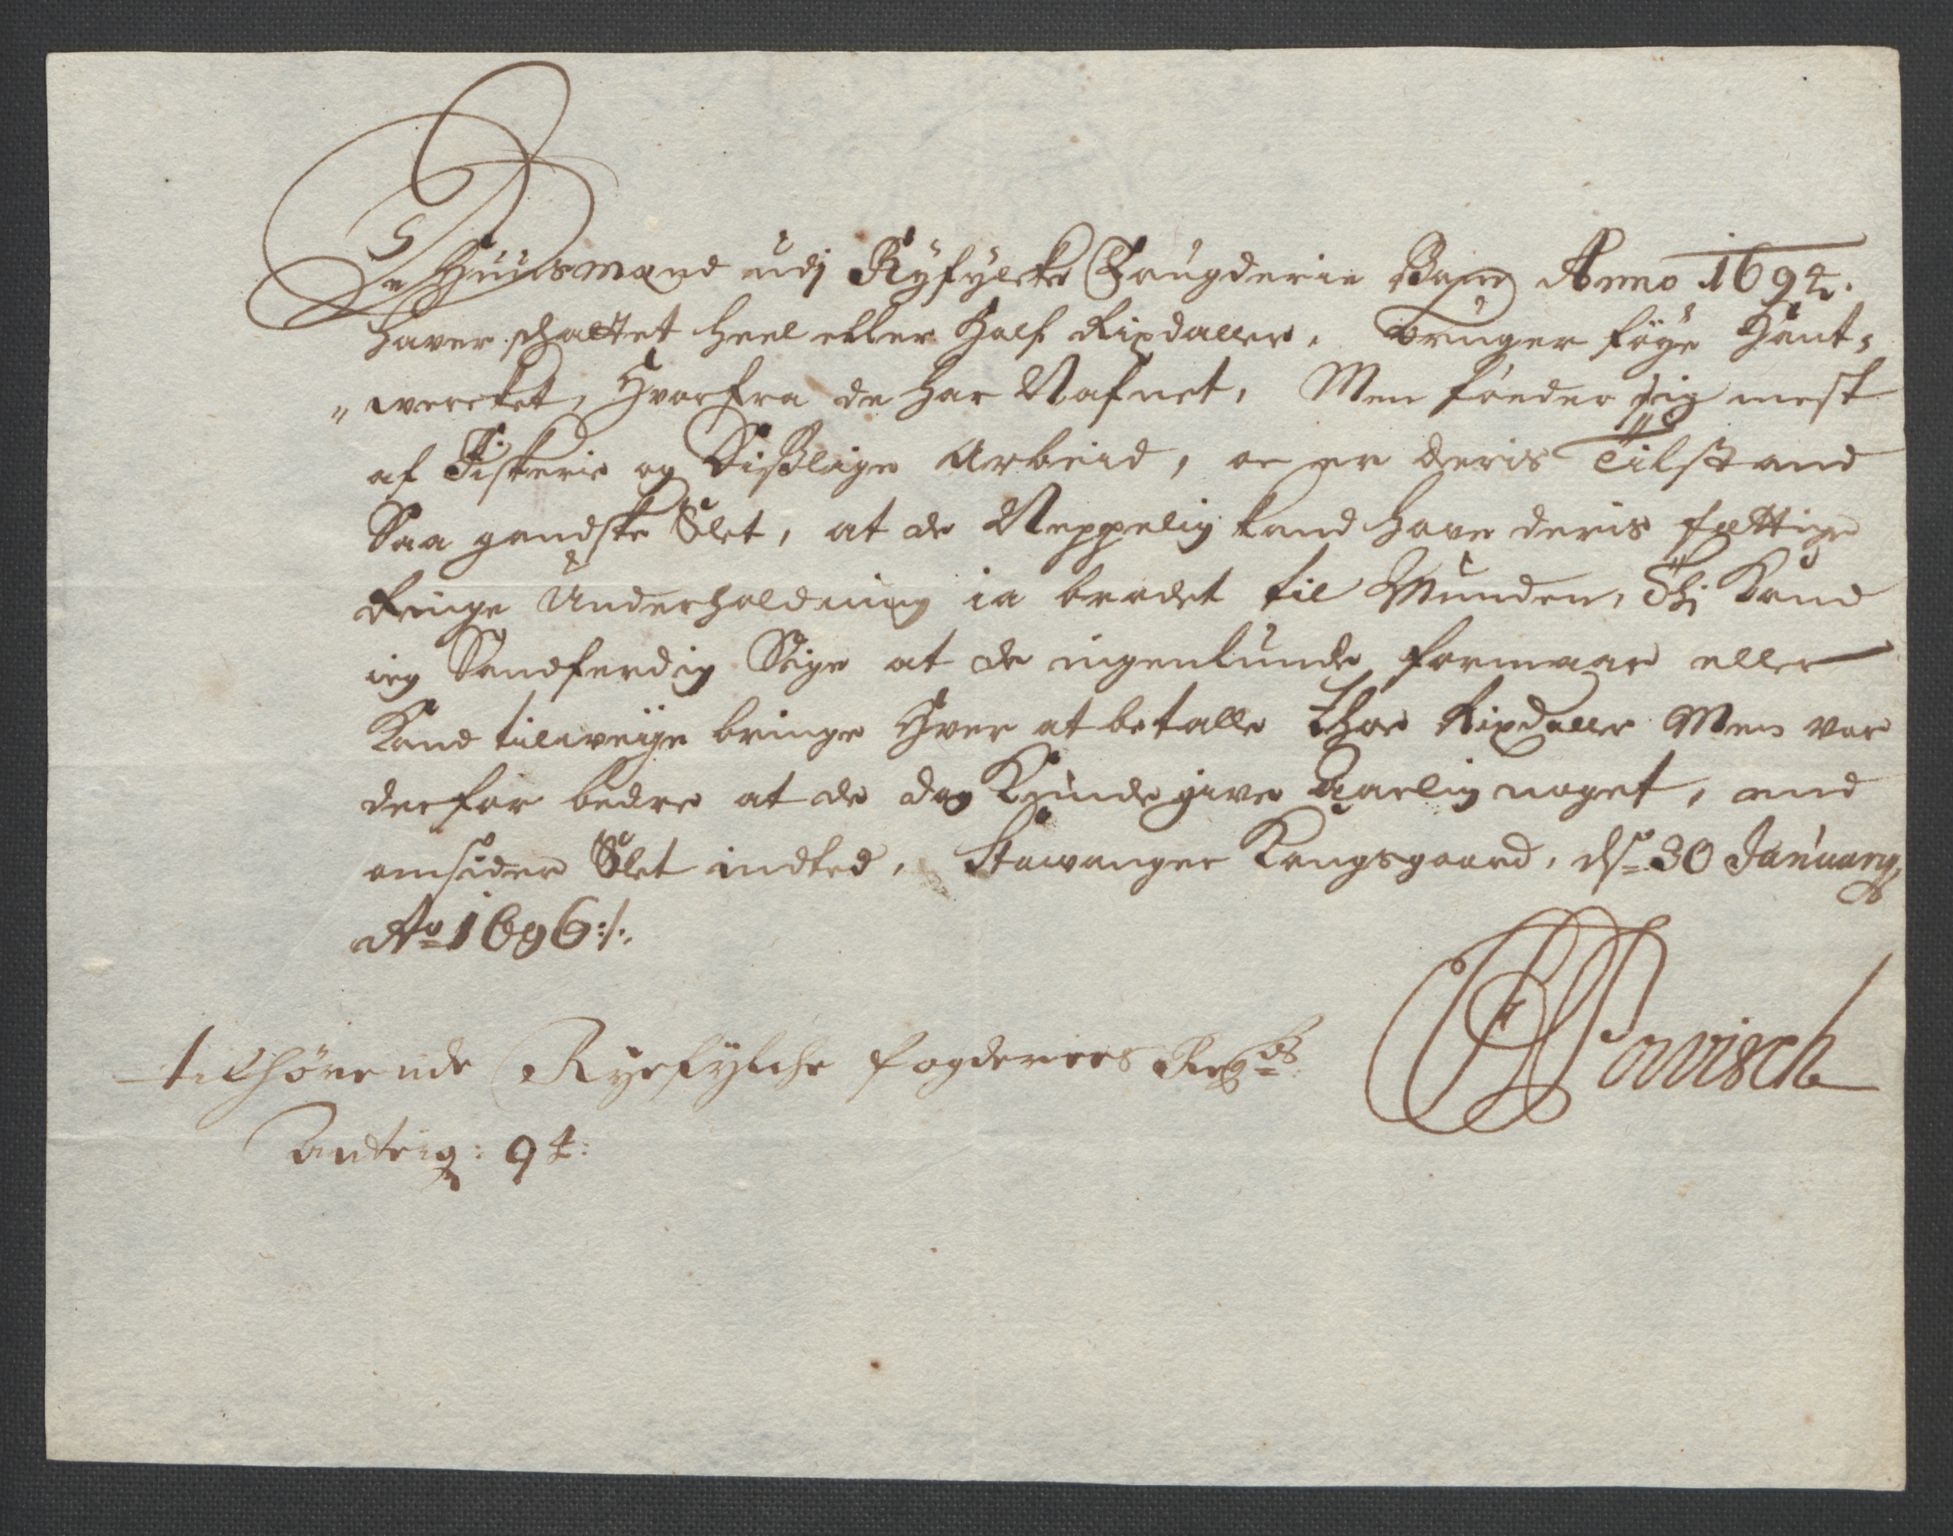 De Huusmænd udj Ryfylcke Fougderie Anno 1694.
haver schattet heel eller Half Rixdaller, bruger føye Hant-
wercket, Hvorfra de har Nafnet, Men føeder sig mest
af Fiskerie og Dißlige Arbeid, oc er deris Tilstand
Saa gandske Slet, at de Neppelig kand have deris fattige
Ringe Underholdning ia brødet til Munden, Thj Kand
ieg Sandferdig Sige at de ingenlunde formaar eller
Kand tilweye bringe Hver at betalle thoe Rixdaller Men var
derfor bedre at de dog Kunde give Aarlig noget, end
omsider Slet indted, Stawanger Kongsgaard, ds 30 January
Ao 1696:/.
CH Powisch
tilhørende Ryefylche fogderies Regs
Anteig: 94: